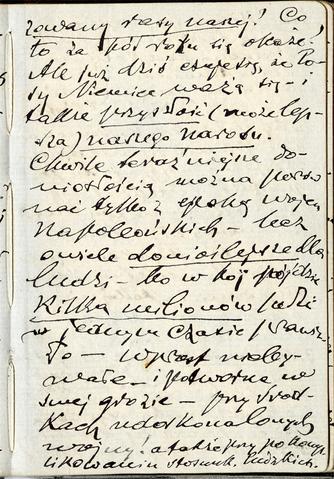 zowany rasy naszej! Co
to za pół roku się okaże!
Ale już dziś czuje się, że lo-
sy Niemiec ważą się - i
także przyszłość (może lep-
sza) naszego narodu.
Chwile teraźniejsze do-
niosłością można porów
nać tylko z epoką wojen
Napoleońskich - lecz
o wiele donioślejsze dla
ludzi - bo w bój pójdzie
Kilka milionów ludzi
w jednym czasie
to - wprost nieby-
wałe - i potworne w
swej grozie - przy środ-
kach udoskonalonych
wojny! a także przy pokomp
likowaniu stosunk. ludzkich.